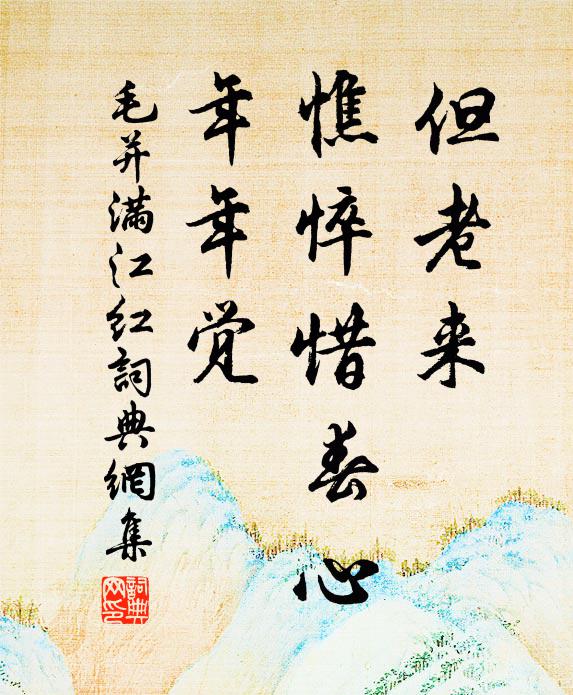 但老来
憔悴惜春心
年年觉
毛并满江红詞典網集
詞典网印